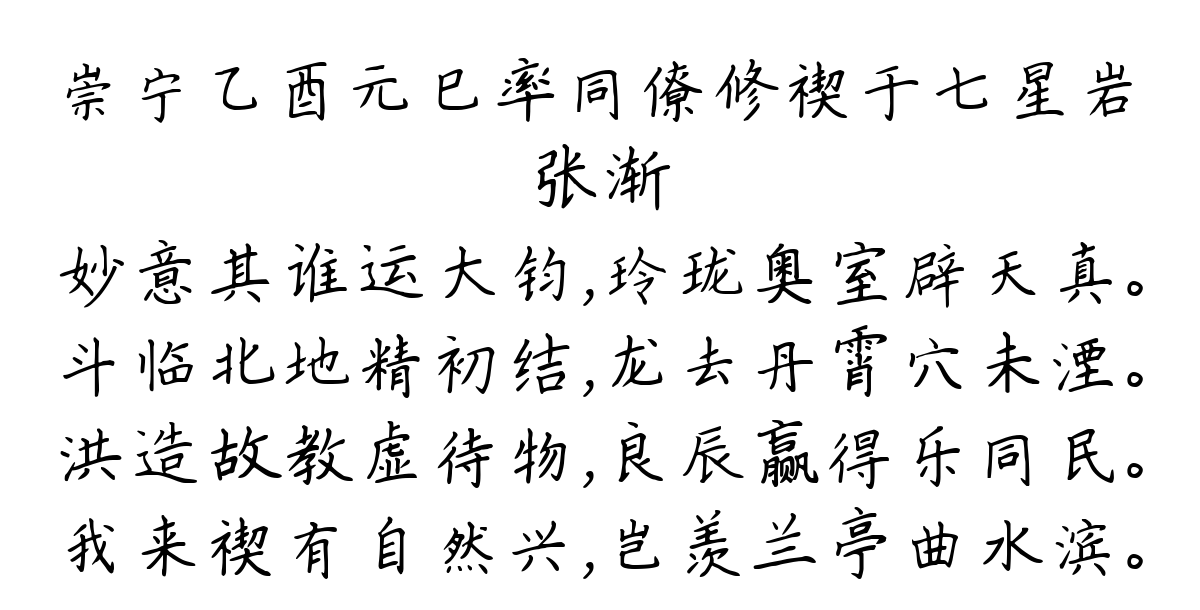 崇宁乙酉元巳率同僚修禊于七星岩
张渐
妙意其谁运大钧,玲珑奥室辟天真。
斗临北地精初结,龙去丹霄穴未湮。
洪造故教虚待物,良辰赢得乐同民。
我来禊有自然兴,岂羡兰亭曲水滨。